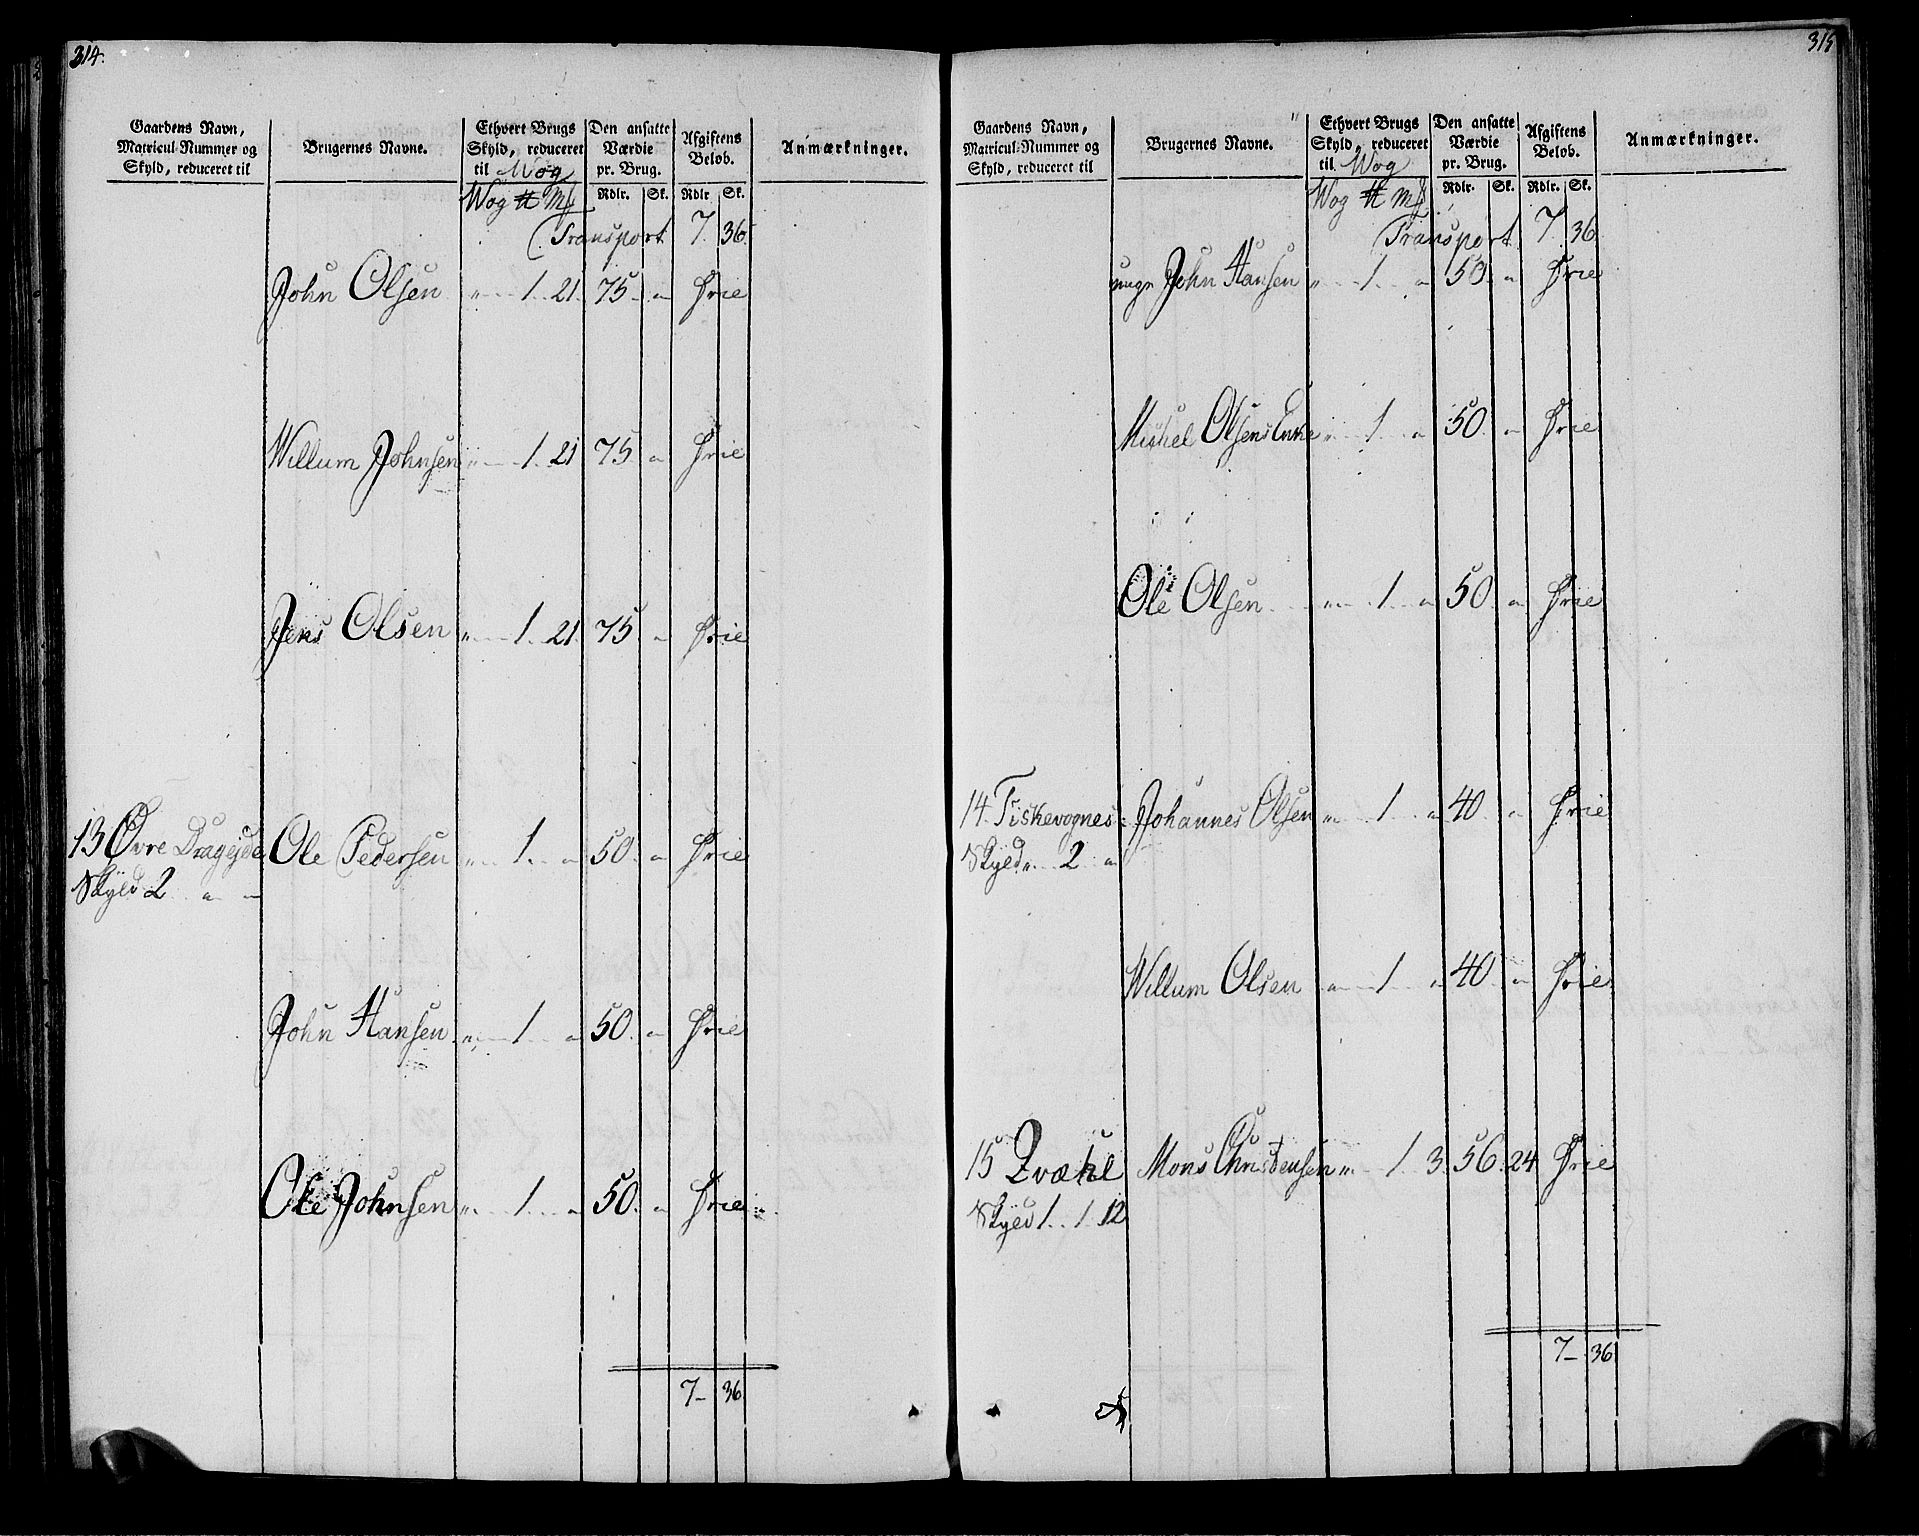 314.
Gaardens Navn, Matricul-Nummer og Skyld, reduceret til
Brugernes Navne.
Ethvert Brugs Skyld, reduceret til Wog
Den ansatte Værdie pr. Brug.
Afgiftens Belöb.
Anmærkninger.
Wog ℔ Mf
Rdlr. Sk. Rdlr Sk.
Transport 7. 36.
John Olsen " 1. 21. 75. " Frie
Willum Johnsen " 1. 21 75. " Frie
Jens Olsen " 1. 21. 75. " Frie
13 Øvre Dragejde Ole Pedersen " 1. " 50. " Frie
Skyld 2 " "
John Hansen " 1 " 50. " Frie
Ole Johnsen " 1. " 50. " Frie
7 36
315
Gaardens Navn, Matricul-Nummer og Skyld, reduceret til
Brugernes Navne.
Ethvert Brugs Skyld, reduceret til Wog
Den ansatte Værdie pr. Brug.
Afgiftens Belöb.
Anmærkninger.
Wog ℔ Mf
Rdlr. Sk. Rdlr. Sk.
Transport 7. 36
unge John Hansen " 1. " 50. " Frie
Mickel Olsens Enke " 1 " 50. " Frie
Ole Olsen " 1. " 50. " Frie
14. Fiskevognes Johannes Olsen " 1. " 40. " Frie
Skyld " 2 "
Willum Olsen " 1 " 40. " Frie
15 Qvæhl Mons Christensen " 1. 3. 56. 24 Frie
Skyld 1. 1 12
7 36